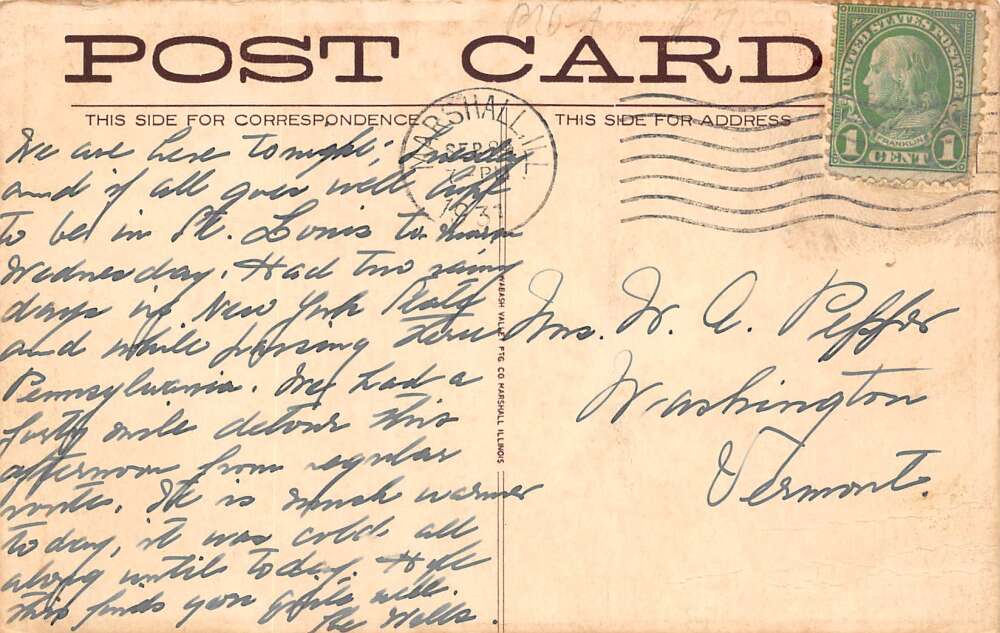 POST CARD
THIS SIDE FOR CORRESPONDENCE
THIS SIDE FOR ADDRESS
UNITED STATES POSTAGE
FRANKLIN
1 CENT 1
MARSHALL, ILL.
SEP
PM
1931
We are here tonight, Tuesday
and if all goes well
to be in St. Louis
Wednesday. Had two rainy
days in New York State
and while passing thru
Pennsylvania. We had a
forty mile detour this
afternoon from regular
route. It is much warmer
today, it was cold all
along until today. Hope
this finds you folks well.
The Wells.
WABASH VALLEY PTG CO MARSHALL ILLINOIS
Mrs. W. A. Peffer
Washington
Vermont.